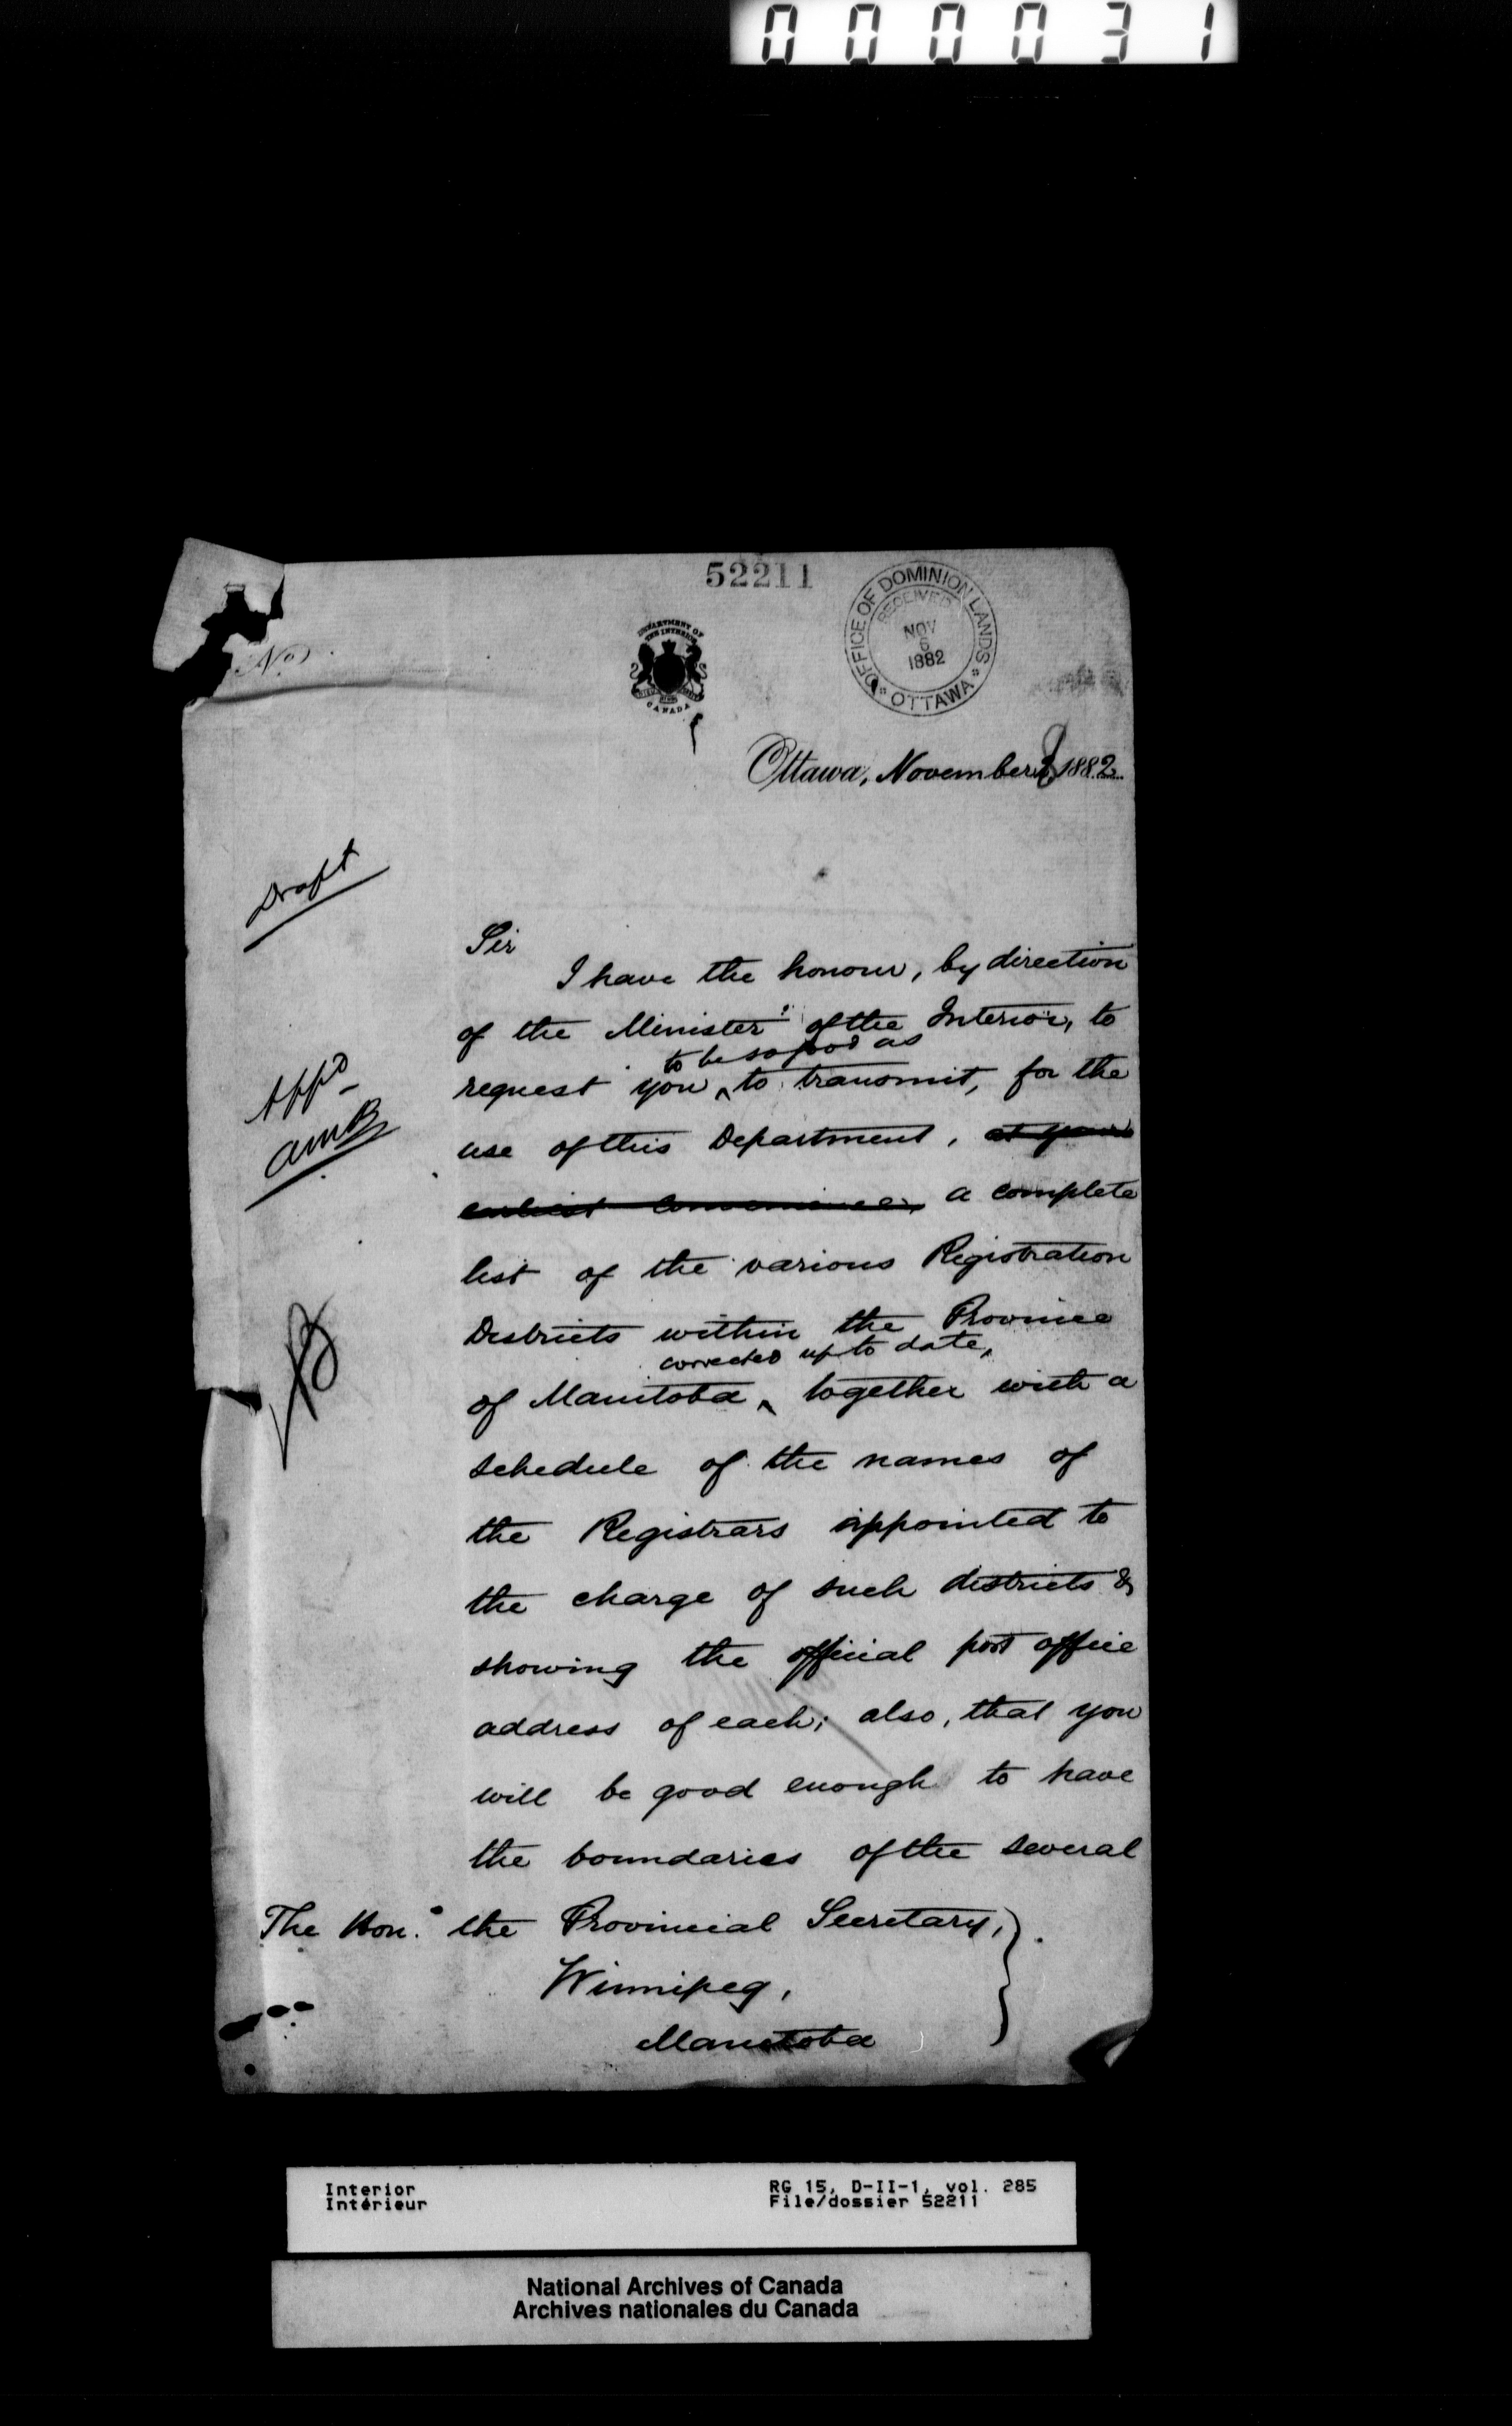 000031
52211
OFFICE OF DOMINION LANDS
RECEIVED
NOV
6
1882
OTTAWA
No.
DEPARTMENT OF
THE INTERIOR
CANADA
Ottawa, November 1882
Draft
Sir
I have the honour, by direction
of the Minister of the Interior, to
to be so good as
request you ^ to transmit, for the
Appd
AMB
use of this Department, at your
earliest convenience, a complete
list of the various Registration
Districts within the Province
corrected up to date,
of Manitoba ^ together with a
schedule of the names of
the Registrars appointed to
the charge of such districts &
showing the official post office
address of each; also, that you
will be good enough to have
the boundaries of the several
The Hon. the Provincial Secretary,
Winnipeg,
Manitoba
Interior
Intérieur
RG 15, D-II-1, vol. 285
File/dossier 52211
National Archives of Canada
Archives nationales du Canada